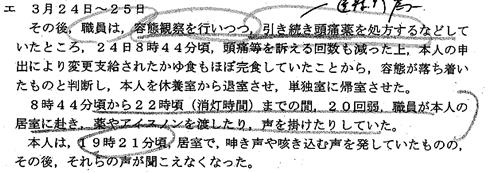 エ　３月２４日～２５日
その後、職員は、容態観察を行いつつ、引き続き頭痛薬を処方するなどして
いたところ、２４日８時４４分頃、頭痛等を訴える回数も減った上、本人の申
出により変更支給されたかゆ食もほぼ完食していたことから、容態が落ち着い
たものと判断し、本人を休養室から退室させ、単独室に帰室させた。
８時４４分頃から２２時頃（消灯時間）までの間、２０回弱、職員が本人の
居室に赴き、薬やアイスノンを渡したり、声を掛けたりしていた。
本人は、１９時２１分頃、居室で、呻き声や咳き込む声を発していたものの、
その後、それらの声が聞こえなくなった。